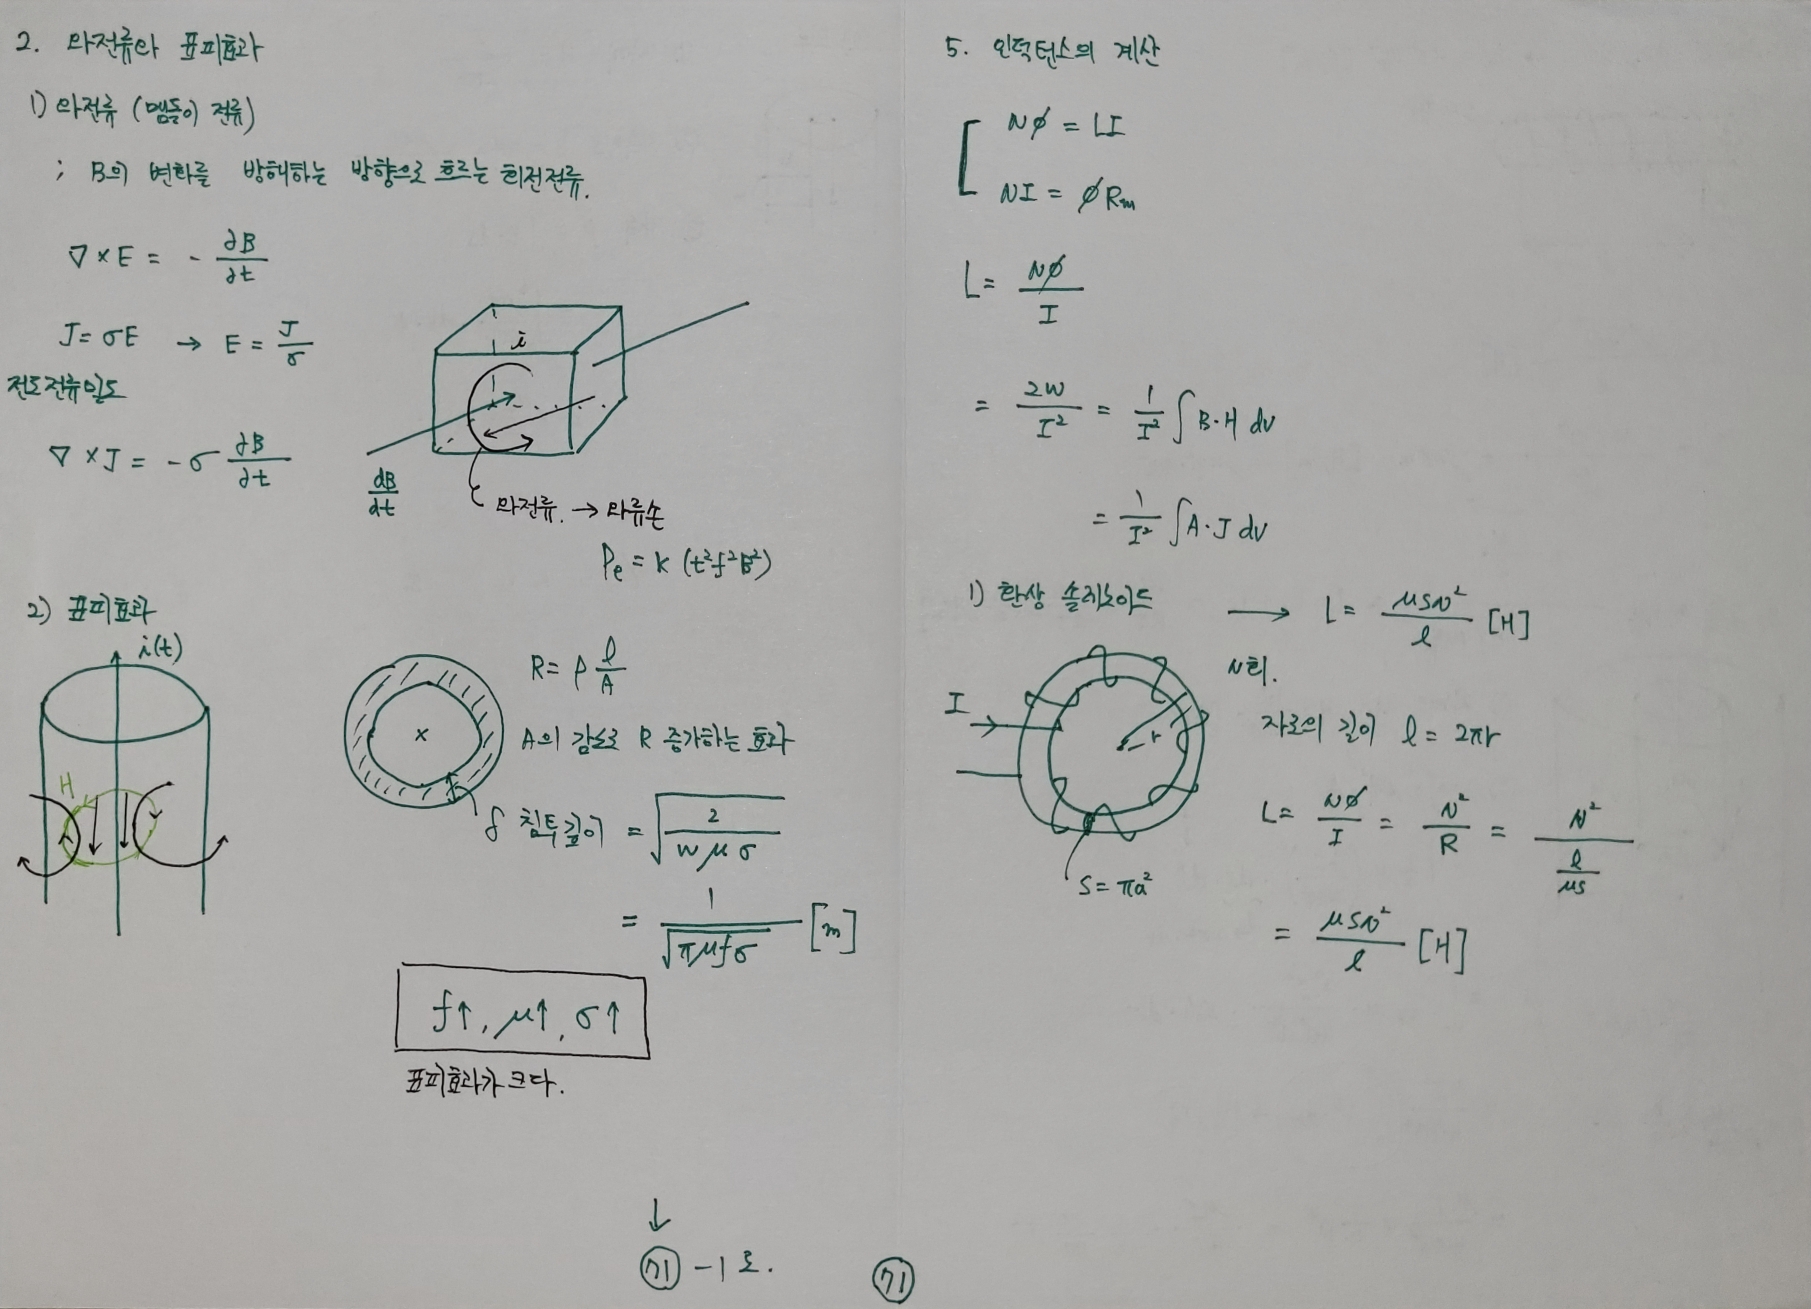 2. 와전류와 표피효과
1) 와전류 (맴돌이 전류)
; B의 변화를 방해하는 방향으로 흐르는 회전전류.
∇×E = - ∂B/∂t
J = σE → E = J/σ
전도전류밀도
∇×J = -σ ∂B/∂t
i
dB/dt
와전류. → 와류손
Pe = k (t²f²B²)
2) 표피효과
i(t)
H
R = ρ l/A
A의 감소로 R 증가하는 효과
δ 침투깊이 = √(2/(wμσ))
= 1/√(πμfσ) [m]
f↑, μ↑, σ↑
표피효과가 크다.
↓
71 -1로.
71
5. 인덕턴스의 계산
Nφ = LI
NI = φRm
L = Nφ/I
= 2W/I² = 1/I² ∫B·H dv
= 1/I² ∫A·J dv
1) 환상 솔레노이드 → L = μSN²/l [H]
N회.
I
r
자로의 길이 l = 2πr
L = Nφ/I = N²/R = N²/(l/μs)
S = πa²
= μSN²/l [H]